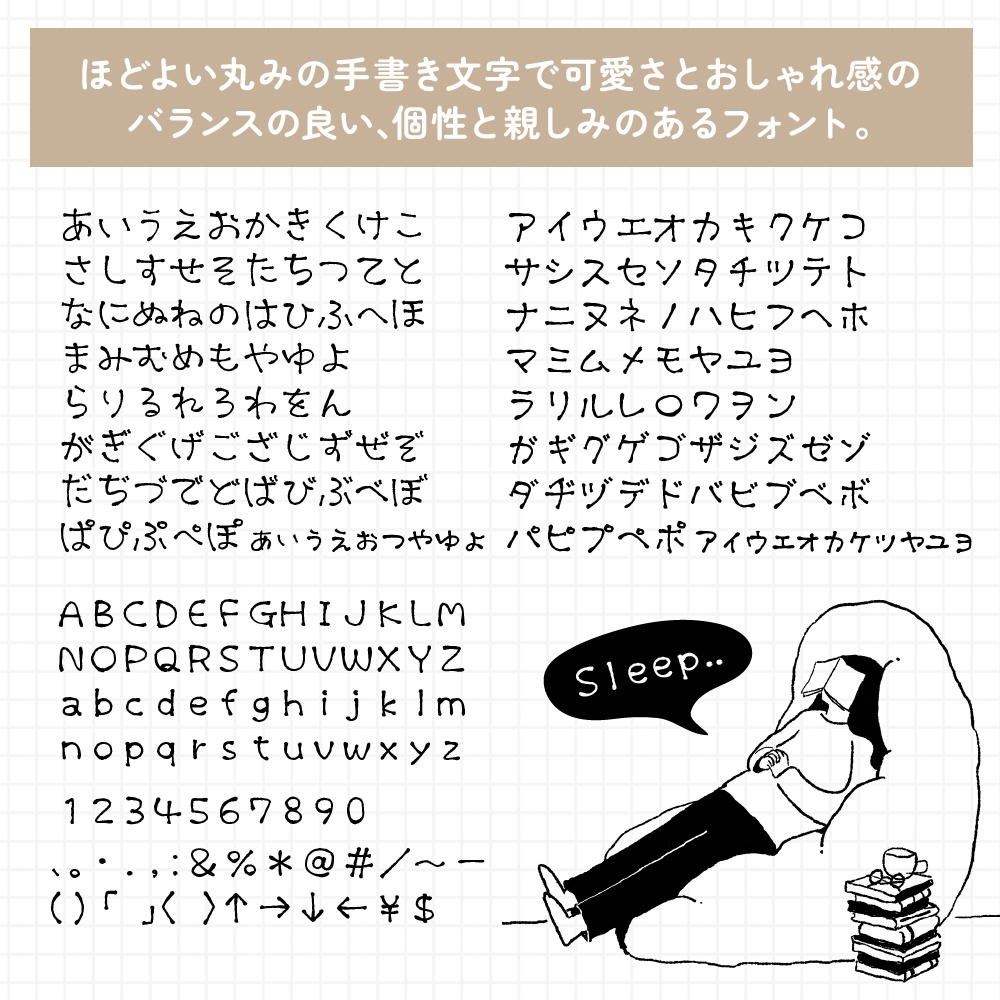 ほどよい丸みの手書き文字で可愛さとおしゃれ感の
バランスの良い、個性と親しみのあるフォント。
あいうえおかきくけこ
さしすせそたちつてと
なにぬねのはひふへほ
まみむめもやゆよ
らりるれろわをん
がぎぐげござじずぜぞ
だぢづでどばびぶべぼ
ぱぴぷぺぽ ぁぃぅぇぉっゃゅょ
アイウエオカキクケコ
サシスセソタチツテト
ナニヌネノハヒフヘホ
マミムメモヤユヨ
ラリルレロワヲン
ガギグゲゴザジズゼゾ
ダヂヅデドバビブベボ
パピプペポ ァィゥェォヵヶッャュョ
ABCDEFGHIJKLM
NOPQRSTUVWXYZ
abcdefghijklm
nopqrstuvwxyz
1234567890
、。・.,:&%*@#/~ー
()「」〈〉↑→↓←¥$
Sleep..